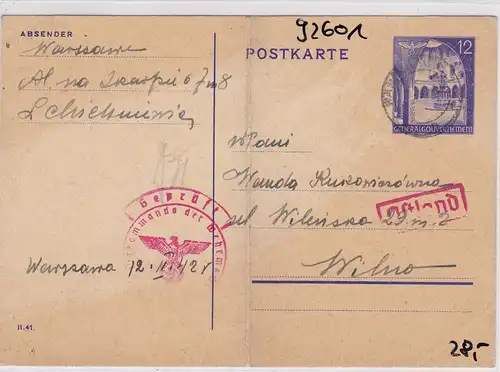 92601
ABSENDER
Warszawa
Al. na Skarpie 67 m 8
POSTKARTE
12
GENERALGOUVERNEMENT
WPani
Wanda
ul Wileńska 29 m. 2
Wilno
Ostland
Geprüft
Oberkommando der Wehrmacht
Warszawa 12. II. 42 r
II. 41.
28,-